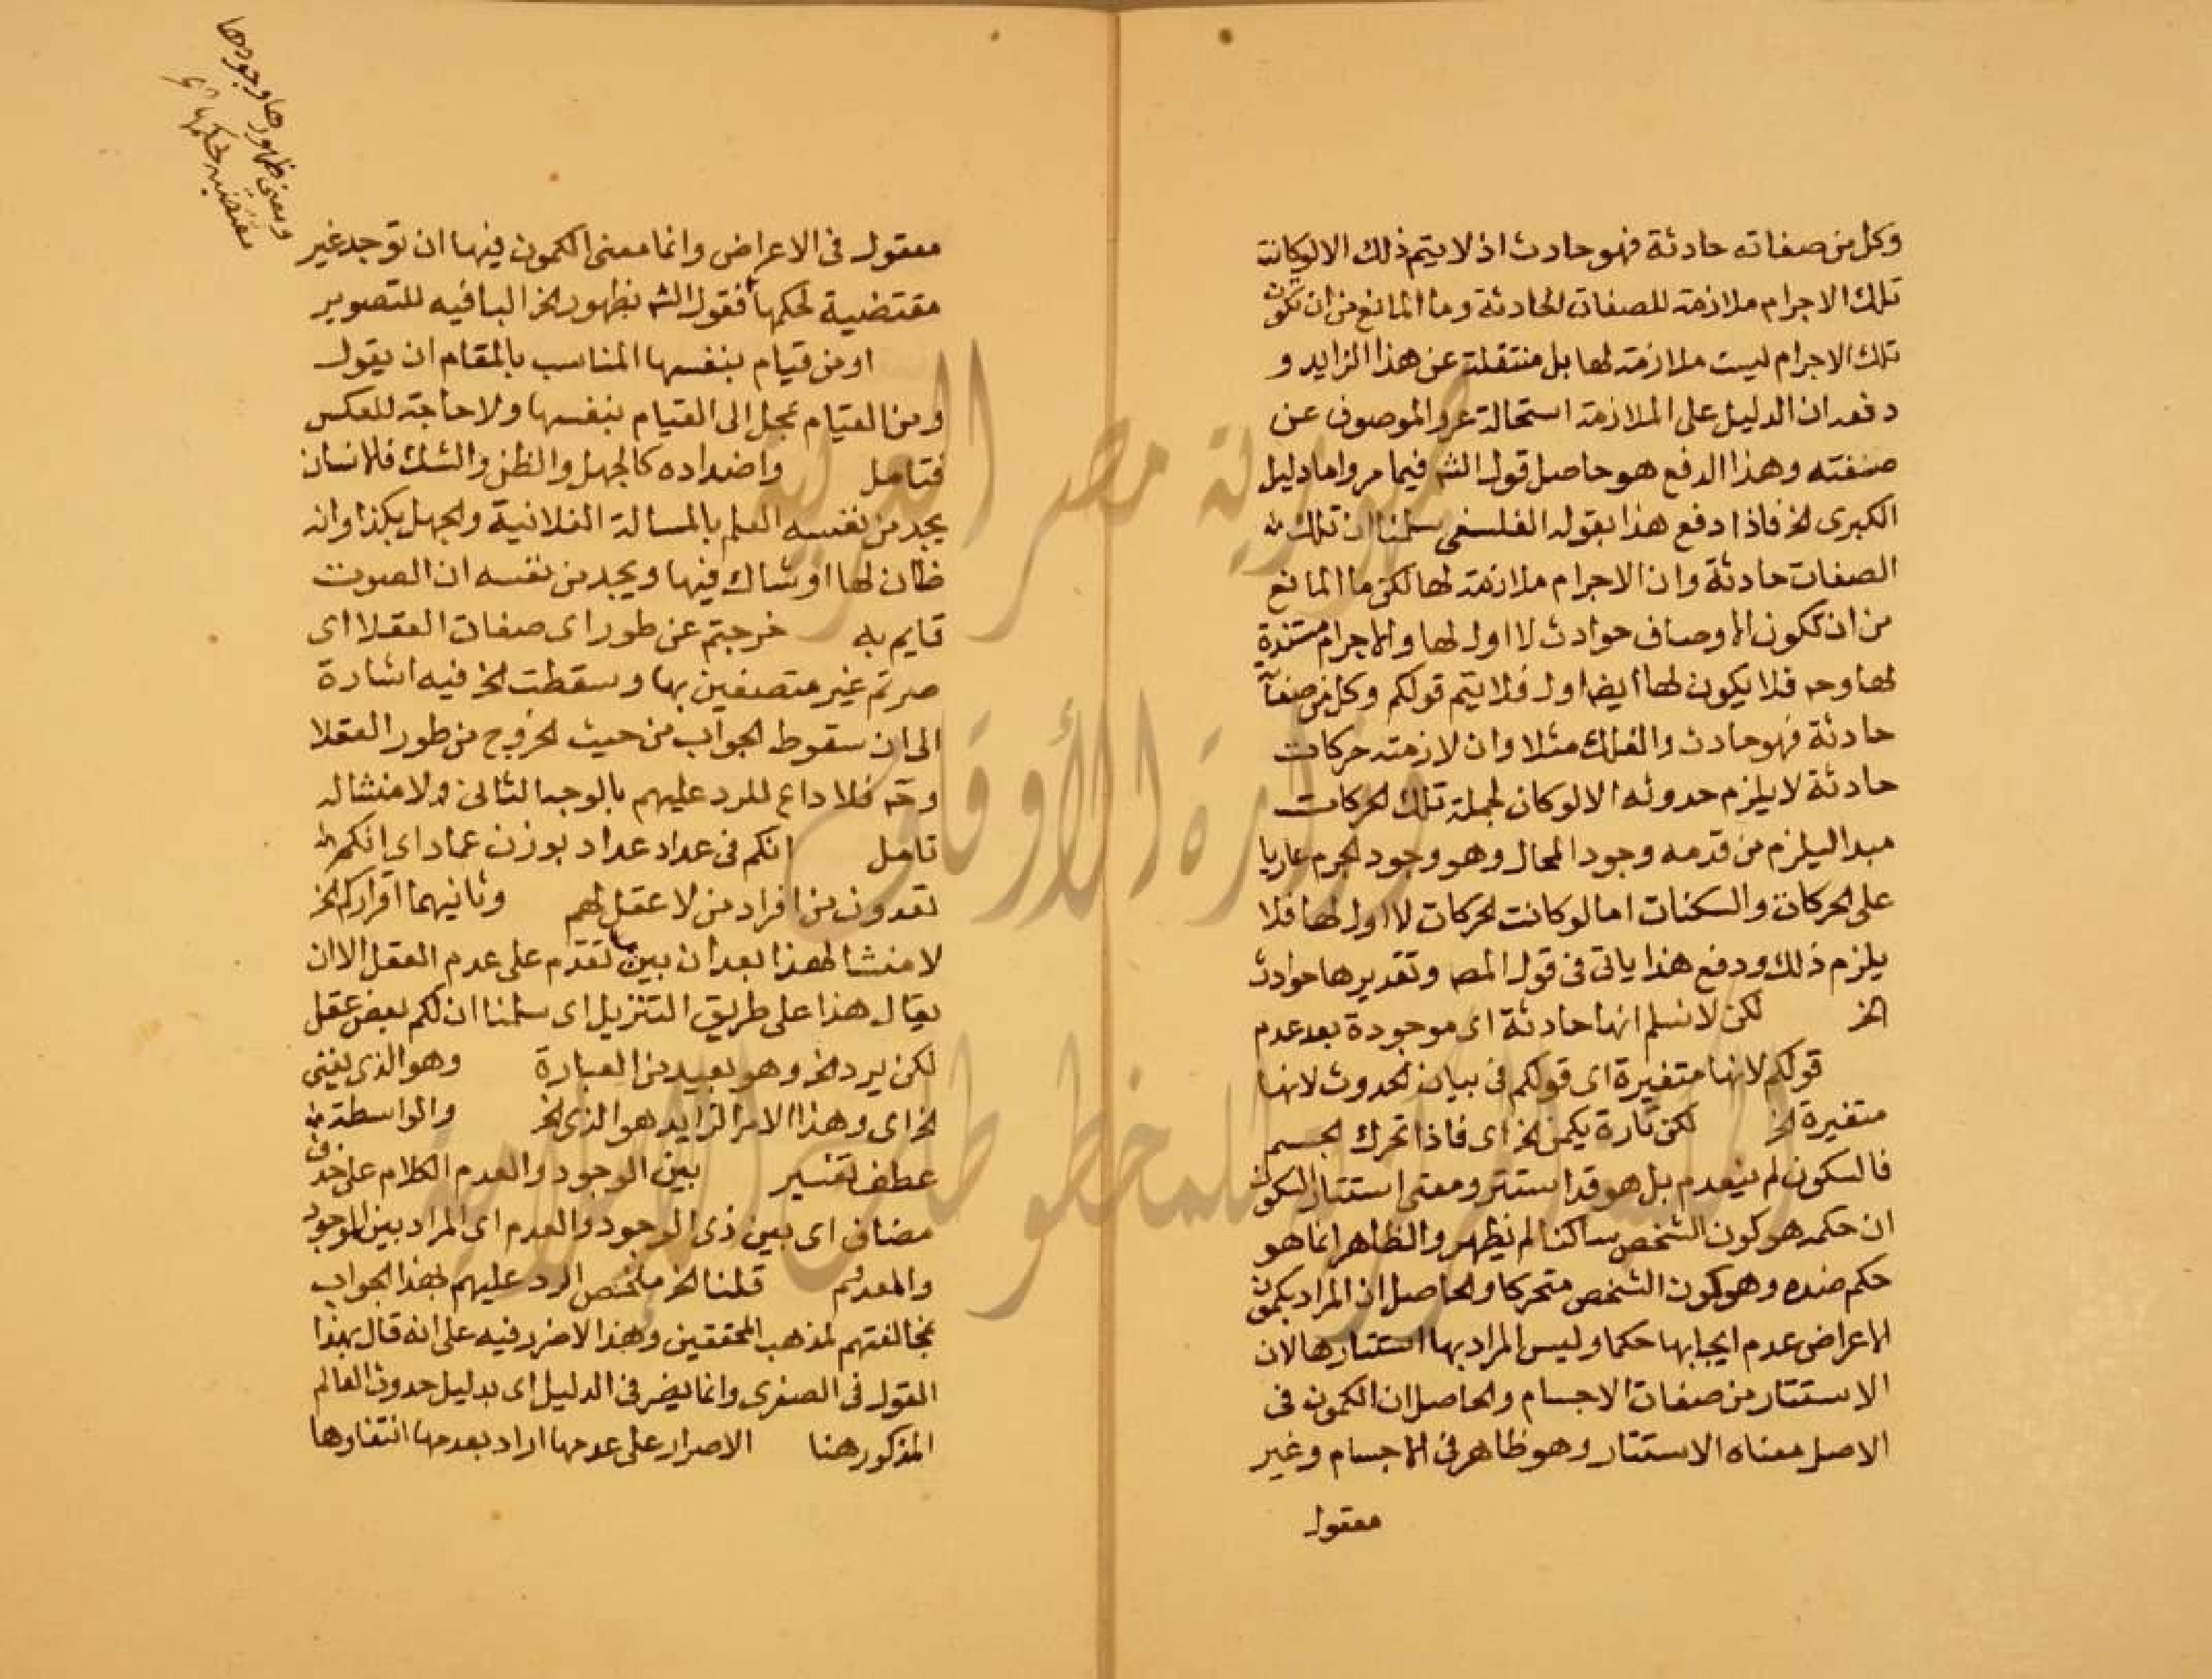 وكل من صفاته حادثة فهو حادث اذ لا يتم ذلك الا لو كانت
تلك الاجرام ملازمة للصفات الحادثة وما المانع من ان تكون
تلك الاجرام ليست ملازمة لها بل منتقلة عن هذا الزايد و
دفعه ان الدليل على الملازمة استحالة عرو الموصوف عن
صفته وهذا الدفع هو حاصل قول الشه فيما مر واما دليل
الكبرى الخ فاذا دفع هذا بقوله الفلسفى سلمنا ان تلك
الصفات حادثة وان الاجرام ملازمة لها لكن ما المانع
من ان تكون الاوصاف حوادث لا اول لها والاجرام مستندة
لها وحه فلا يكون لها ايضا اول فلا يتم قولكم وكل من صفاته
حادثة فهو حادث والفلك مثلا وان لازمته حركات
حادثة لا يلزم حدوثه الا لو كان لجملة تلك الحركات
مبدا ليلزم من قدمه وجود المحال وهو وجود الجرم عاريا
على الحركات والسكنات اما لو كانت الحركات لا اول لها فلا
يلزم ذلك ودفع هذا ياتى فى قول المصه وتقديرها حوادث
الخ لكن لا نسلم انها حادثة اى موجودة بعد عدم
قولكم لانها متغيرة اى قولكم فى بيان الحدوث لانها
متغيرة الخ لكن تارة يكمن الخ اى فاذا تحرك الجسم
فالسكون لم ينعدم بل هو قد استتر ومعنى استتار السكون
ان حكمه هو كون الشخص ساكنا لم يظهر والظاهر انما هو
حكم ضده وهو كون الشخص متحركا والحاصل ان المراد بكمون
الاعراض عدم ايجابها حكما وليس المراد بها استتارها لان
الاستتار من صفات الاجسام والحاصل ان الكمون فى
الاصل معناه الاستتار وهو ظاهر فى الاجسام وغير
معقول
معقول فى الاعراض وانما معنى الكمون فيها ان توجد غير
مقتضية لحكمها فقول الشه بظهور الخ البا فيه للتصوير
او من قيام بنفسها المناسب بالمقام ان يقول
ومن القيام بمحل الى القيام بنفسها ولا حاجة للعكس
فتامل واضداده كالجهل والظن والشك فالانسان
يجد من نفسه العلم بالمسالة الفلانية والجهل بكذا وانه
ظان لها او شاك فيها ويجد من نفسه ان الصوت
قايم به خرجتم عن طور اى صفات العقلا اى
صرتم غير متصفين بها وسقطت الخ فيه اشارة
الى ان سقوط الجواب من حيث الخروج من طور العقلا
وحه فلا داع للرد عليهم بالوجه الثانى ولا منشا له
تامل انكم فى عداد عداد بوزن عماد اى انكم
تعدون من افراد من لا عقل لهم وثانيهما اقراركم الخ
لا منشا لهذا بعد ان بين ما تقدم على عدم العقل الا ان
يقال هذا على طريق التنزيل اى سلمنا ان لكم بعض عقل
لكن يرد الخ وهو بعيد من العبارة وهو الذى يغنى
الخ اى وهذا الامر الزايد هو الذى الخ والواسطة
عطف تفسير بين الوجود والعدم الكلام على حذف
مضاف اى بين ذى الوجود والعدم اى المراد بين الموجود
والمعدوم قلنا الخ ملخص الرد عليهم بهذا الجواب
بمخالفتهم لمذهب المحققين وهذا لا ضرر فيه على انه قال بهذا
القول فى الصغرى وانما يضر فى الدليل اى بدليل حدوث العالم
المذكور هنا الاصرار على عدمها اراد بعدمها انتفاوها
ومعنى ظهورها وجودها
مقتضية لحكمها